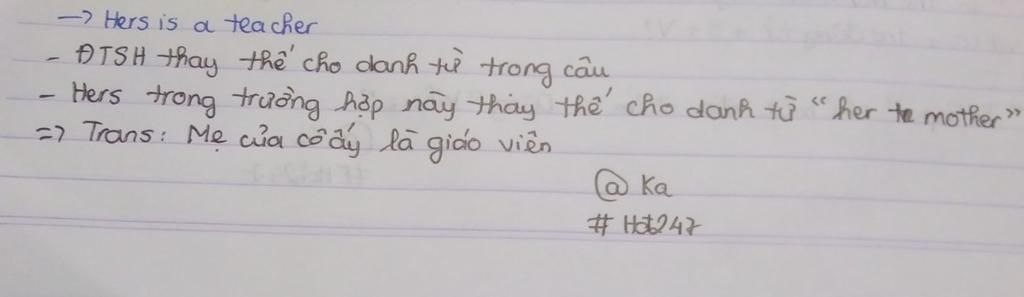 → Hers is a teacher
- ĐTSH thay thế cho danh từ trong câu
- Hers trong trường hợp này thay thế cho danh từ “her mother”
=> Trans: Mẹ của cô ấy là giáo viên
@ Ka
# Hot247